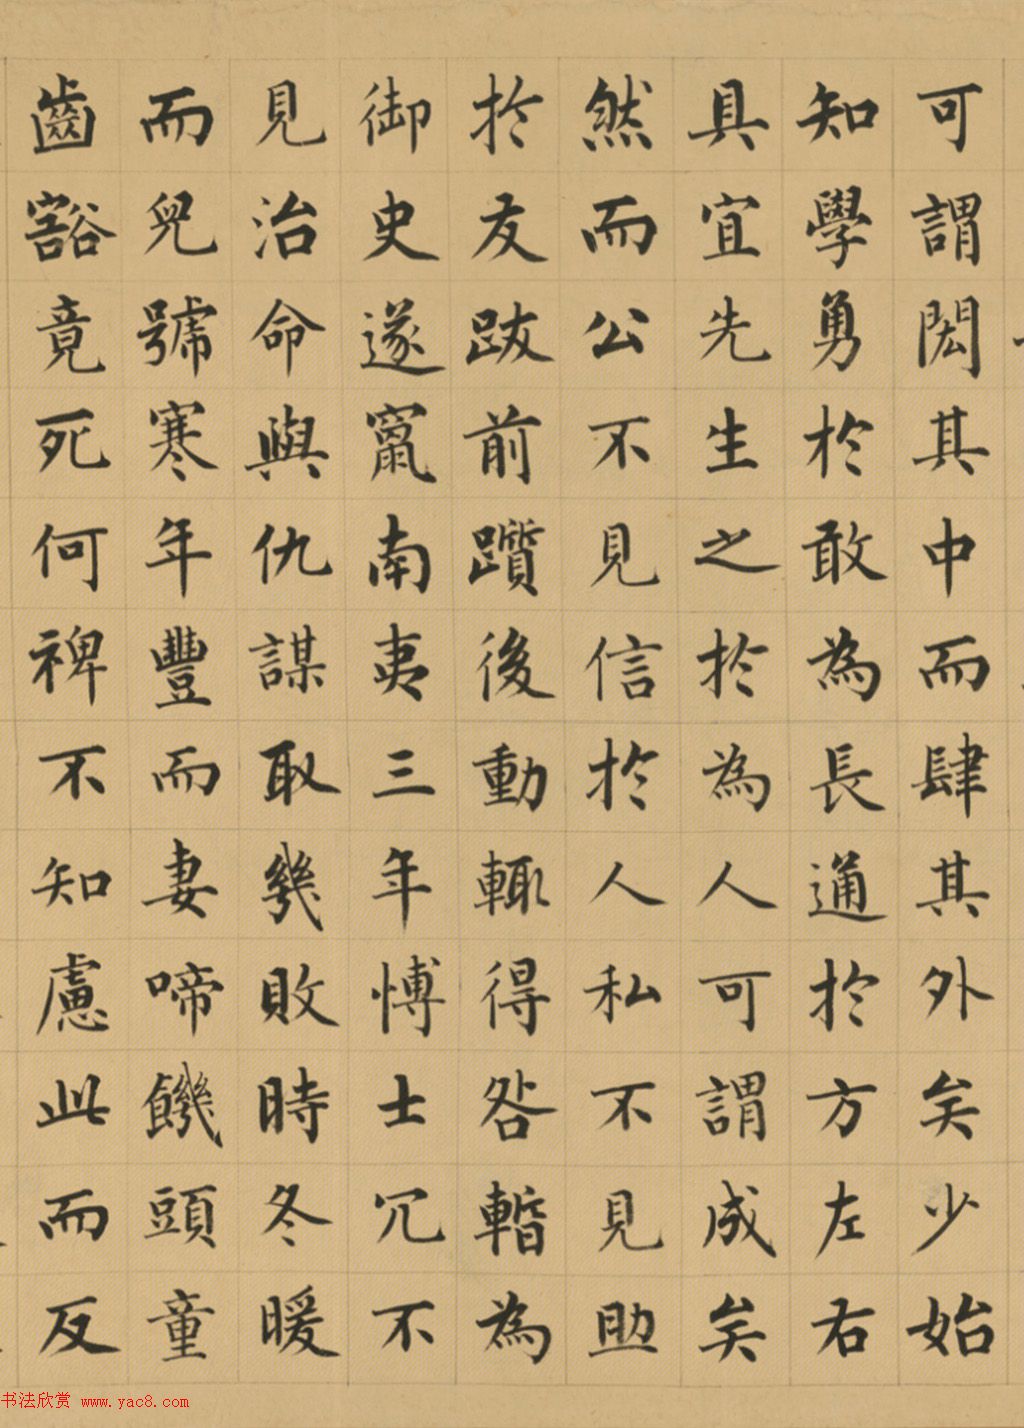 可謂閎其中而肆其外矣少始
知學勇於敢為長通於方左右
具宜先生之於為人可謂成矣
然而公不見信於人私不見助
於友跋前躓後動輒得咎暫為
御史遂竄南夷三年博士冗不
見治命與仇謀取幾敗時冬暖
而兒號寒年豐而妻啼饑頭童
齒豁竟死何裨不知慮此而反
书法欣赏 www.yac8.com